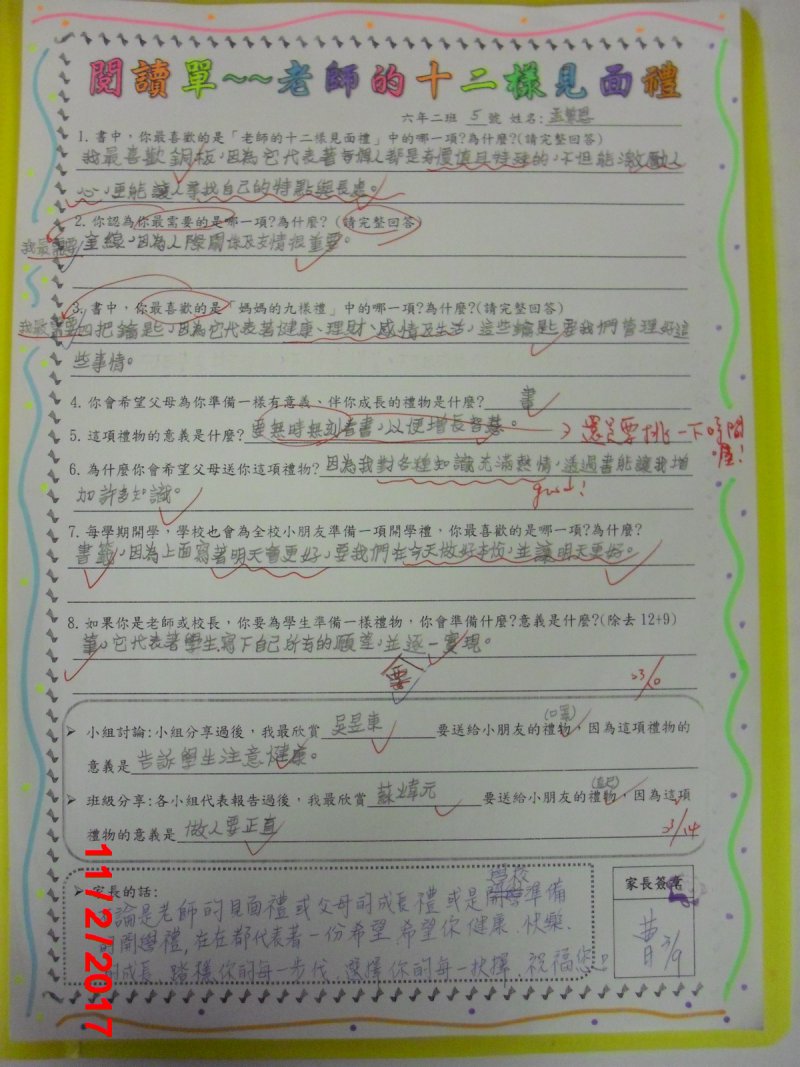 閱讀單~~老師的十二樣見面禮
六年二班 5 號 姓名:
1. 書中，你最喜歡的是「老師的十二樣見面禮」中的哪一項?為什麼?(請完整回答)
我最喜歡銅板，因為它代表著每個人都是有價值且特殊的，不但能激勵人
心，更能讓人尋找自己的特點與長處。
2. 你認為你最需要的是哪一項?為什麼? (請完整回答)
我最需要 線，因為人際關係及友情很重要。
3. 書中，你最喜歡的是「媽媽的九樣禮」中的哪一項?為什麼?(請完整回答)
我最需要四把鑰匙，因為它代表著健康、理財、感情及生活，這些鑰匙要我們管理好這
些事情。
4. 你會希望父母為你準備一樣有意義、伴你成長的禮物是什麼? 書
5. 這項禮物的意義是什麼? 要無時無刻看書，以便增長智慧。 還是要挑一下時間
喔!
6. 為什麼你會希望父母送你這項禮物? 因為我對各種知識充滿熱情，透過書能讓我增
加許多知識。 good!
7. 每學期開學，學校也會為全校小朋友準備一項開學禮，你最喜歡的是哪一項?為什麼?
書籤，因為上面寫著明天會更好，要我們在今天做好本份，並讓明天更好。
8. 如果你是老師或校長，你要為學生準備一樣禮物，你會準備什麼?意義是什麼?(除去 12+9)
筆，它代表著學生寫下自己所有的願望，並逐一實現。
要
小組討論:小組分享過後，我最欣賞 吳昱東 要送給小朋友的禮物(口罩)，因為這項禮物的
意義是 告訴學生注意健康。
班級分享:各小組代表報告過後，我最欣賞 蘇煒元 要送給小朋友的禮物(直尺)，因為這項
禮物的意義是 做人要正直 3/14
家長的話: 家長簽名
論是老師的見面禮或父母的成長禮或是學校準備
的開學禮，在在都代表著一份希望，希望你健康、快樂、
的成長，踏穩你的每一步伐，選擇你的每一抉擇，祝福您!
黃 3/9
11/2/2017